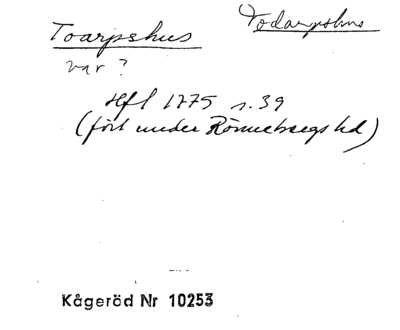 Toarpshus Todarpshus
var?
Hfl 1775 s. 39
(fört under Rönnebergs hd)
Kågeröd Nr 10253